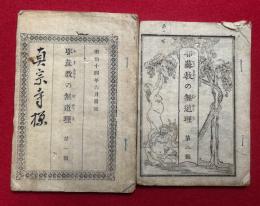 明治十四年六月再版
耶蘇教の無道理 第一編
真宗寺様
耶蘇教の無道理 第二編